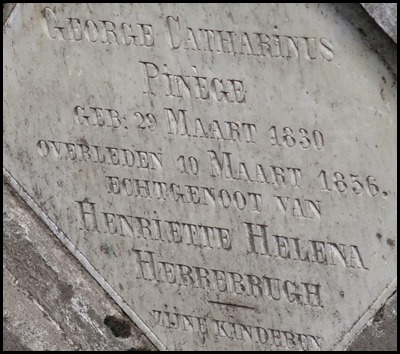 George Catharinus
Pinège
geb: 29 Maart 1830
overleden 10 Maart 1856.
echtgenoot van
Henriette Helena
Herrebrugh
zijne kinderen